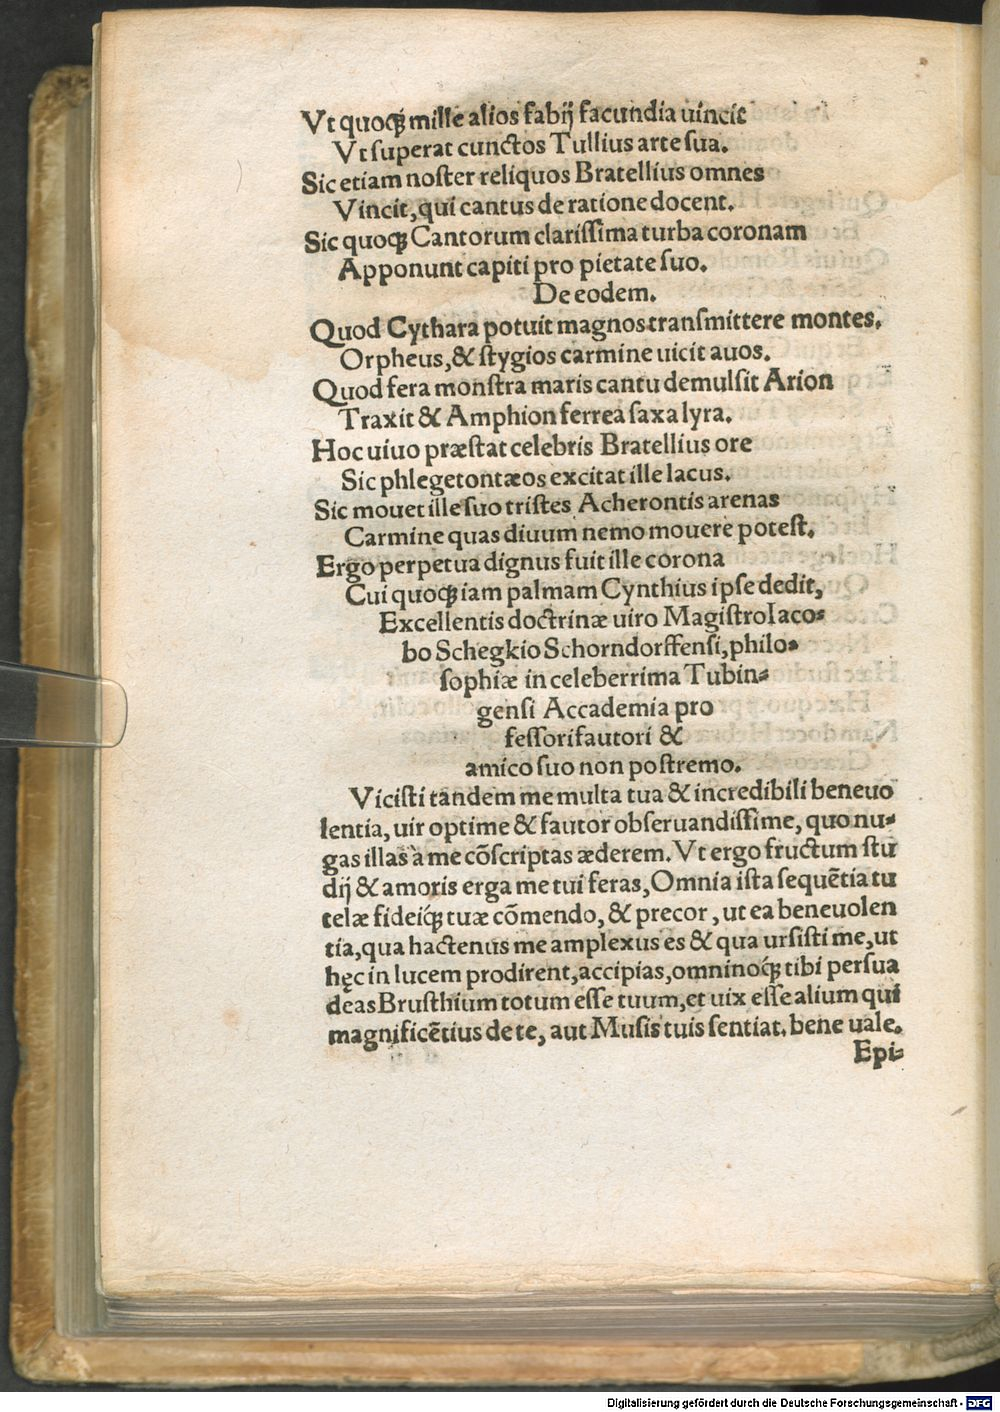 Vt quoq̃ mille alios fabij facundia uincit
Vt superat cunctos Tullius arte sua.
Sic etiam noster reliquos Bratellius omnes
Vincit, qui cantus de ratione docent.
Sic quoq̃ Cantorum clarissima turba coronam
Apponunt capiti pro pietate suo.
De eodem.
Quod Cythara potuit magnos transmittere montes,
Orpheus, & stygios carmine uicit auos.
Quod fera monstra maris cantu demulsit Arion
Traxit & Amphion ferrea saxa lyra.
Hoc uiuo præstat celebris Bratellius ore
Sic phlegetontæos excitat ille lacus.
Sic mouet ille suo tristes Acherontis arenas
Carmine quas diuum nemo mouere potest,
Ergo perpetua dignus fuit ille corona
Cui quoq̃ iam palmam Cynthius ipse dedit,
Excellentis doctrinæ uiro Magistro Iaco-
bo Schegkio Schorndorffensi, philo-
sophiæ in celeberrima Tubin-
gensi Accademia pro
fessori fautori &
amico suo non postremo.
Vicisti tandem me multa tua & incredibili beneuo
lentia, uir optime & fautor obseruandissime, quo nu-
gas illas à me cõscriptas æderem. Vt ergo fructum stu
dij & amoris erga me tui feras, Omnia ista sequẽtia tu
telæ fideiq̃ tuæ cõmendo, & precor, ut ea beneuolen
tia, qua hactenus me amplexus es & qua ursisti me, ut
hęc in lucem prodirent, accipias, omninoq̃ tibi persua
deas Brusthium totum esse tuum, et uix esse alium qui
magnificẽtius de te, aut Musis tuis sentiat. bene uale.
Epi-
Digitalisierung gefördert durch die Deutsche Forschungsgemeinschaft - DFG